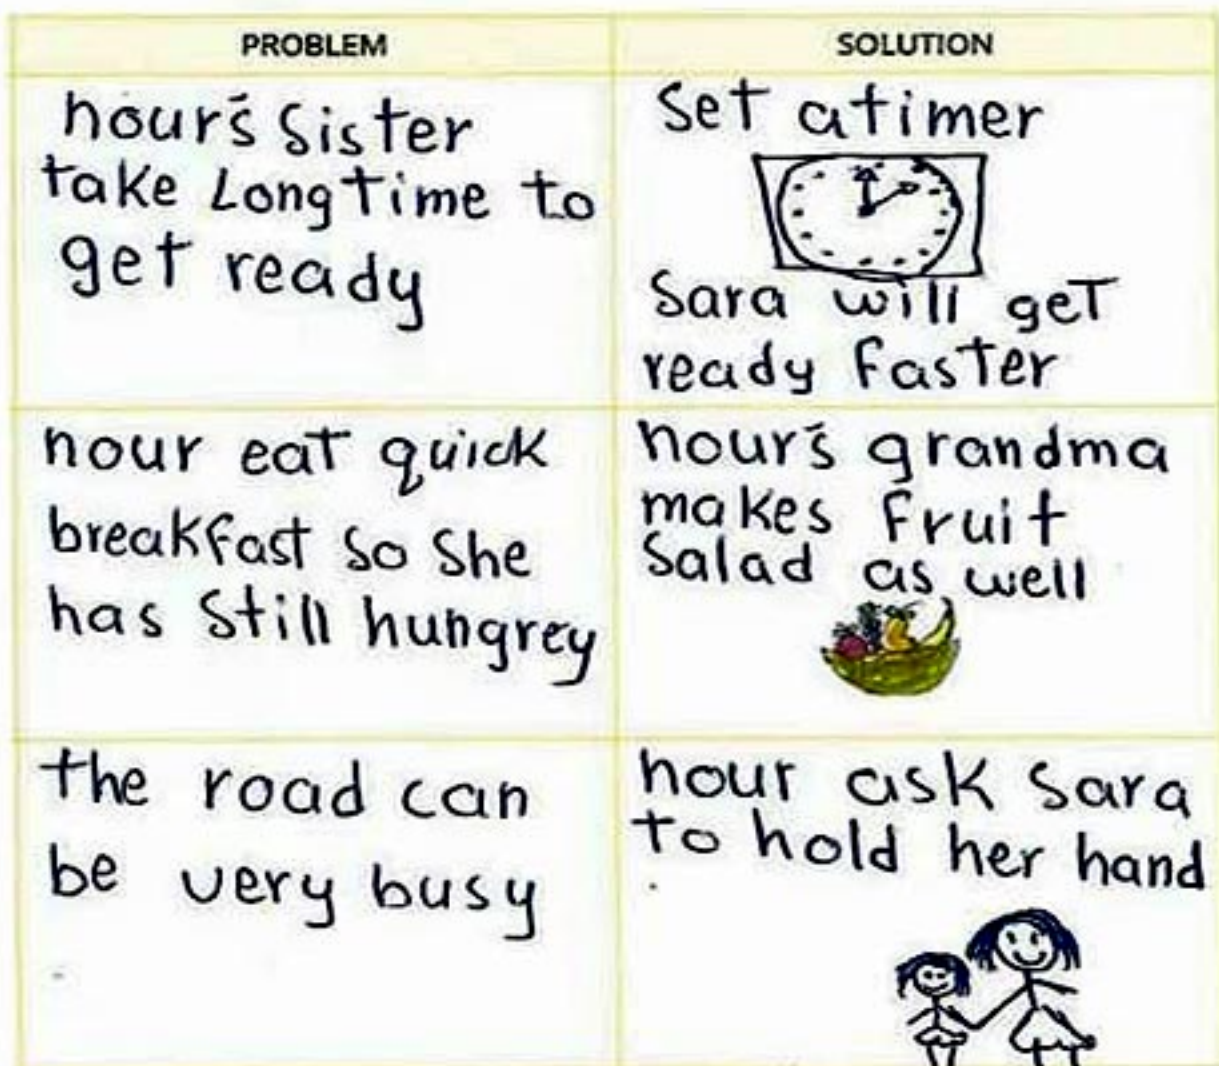 PROBLEM
SOLUTION
nour's Sister
take Long Time to
get ready
Set a timer
Sara will get
ready faster
nour eat quick
breakfast so She
has Still hungrey
nour's grandma
makes fruit
Salad as well
the road can
be very busy
nour ask Sara
to hold her hand